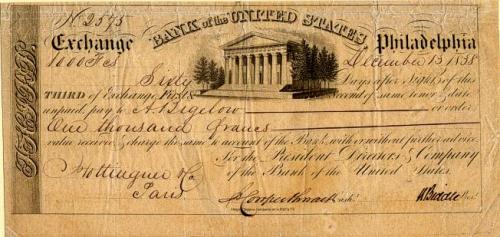 No 2595
BANK of the UNITED STATES,
Exchange Philadelphia
1000 Fcs December 13 1838
Sixty Days after Sight of this
THIRD of Exchange First & Second of same tenor & date
unpaid, pay to A. Bigelow or order
One thousand francs
value received & charge the same to account of the Bank, with or without further advice.
For the President Directors & Company
of the Bank of the United States.
Hottinguer & Co
Paris
Cash'r N Biddle Pres'
THIRD